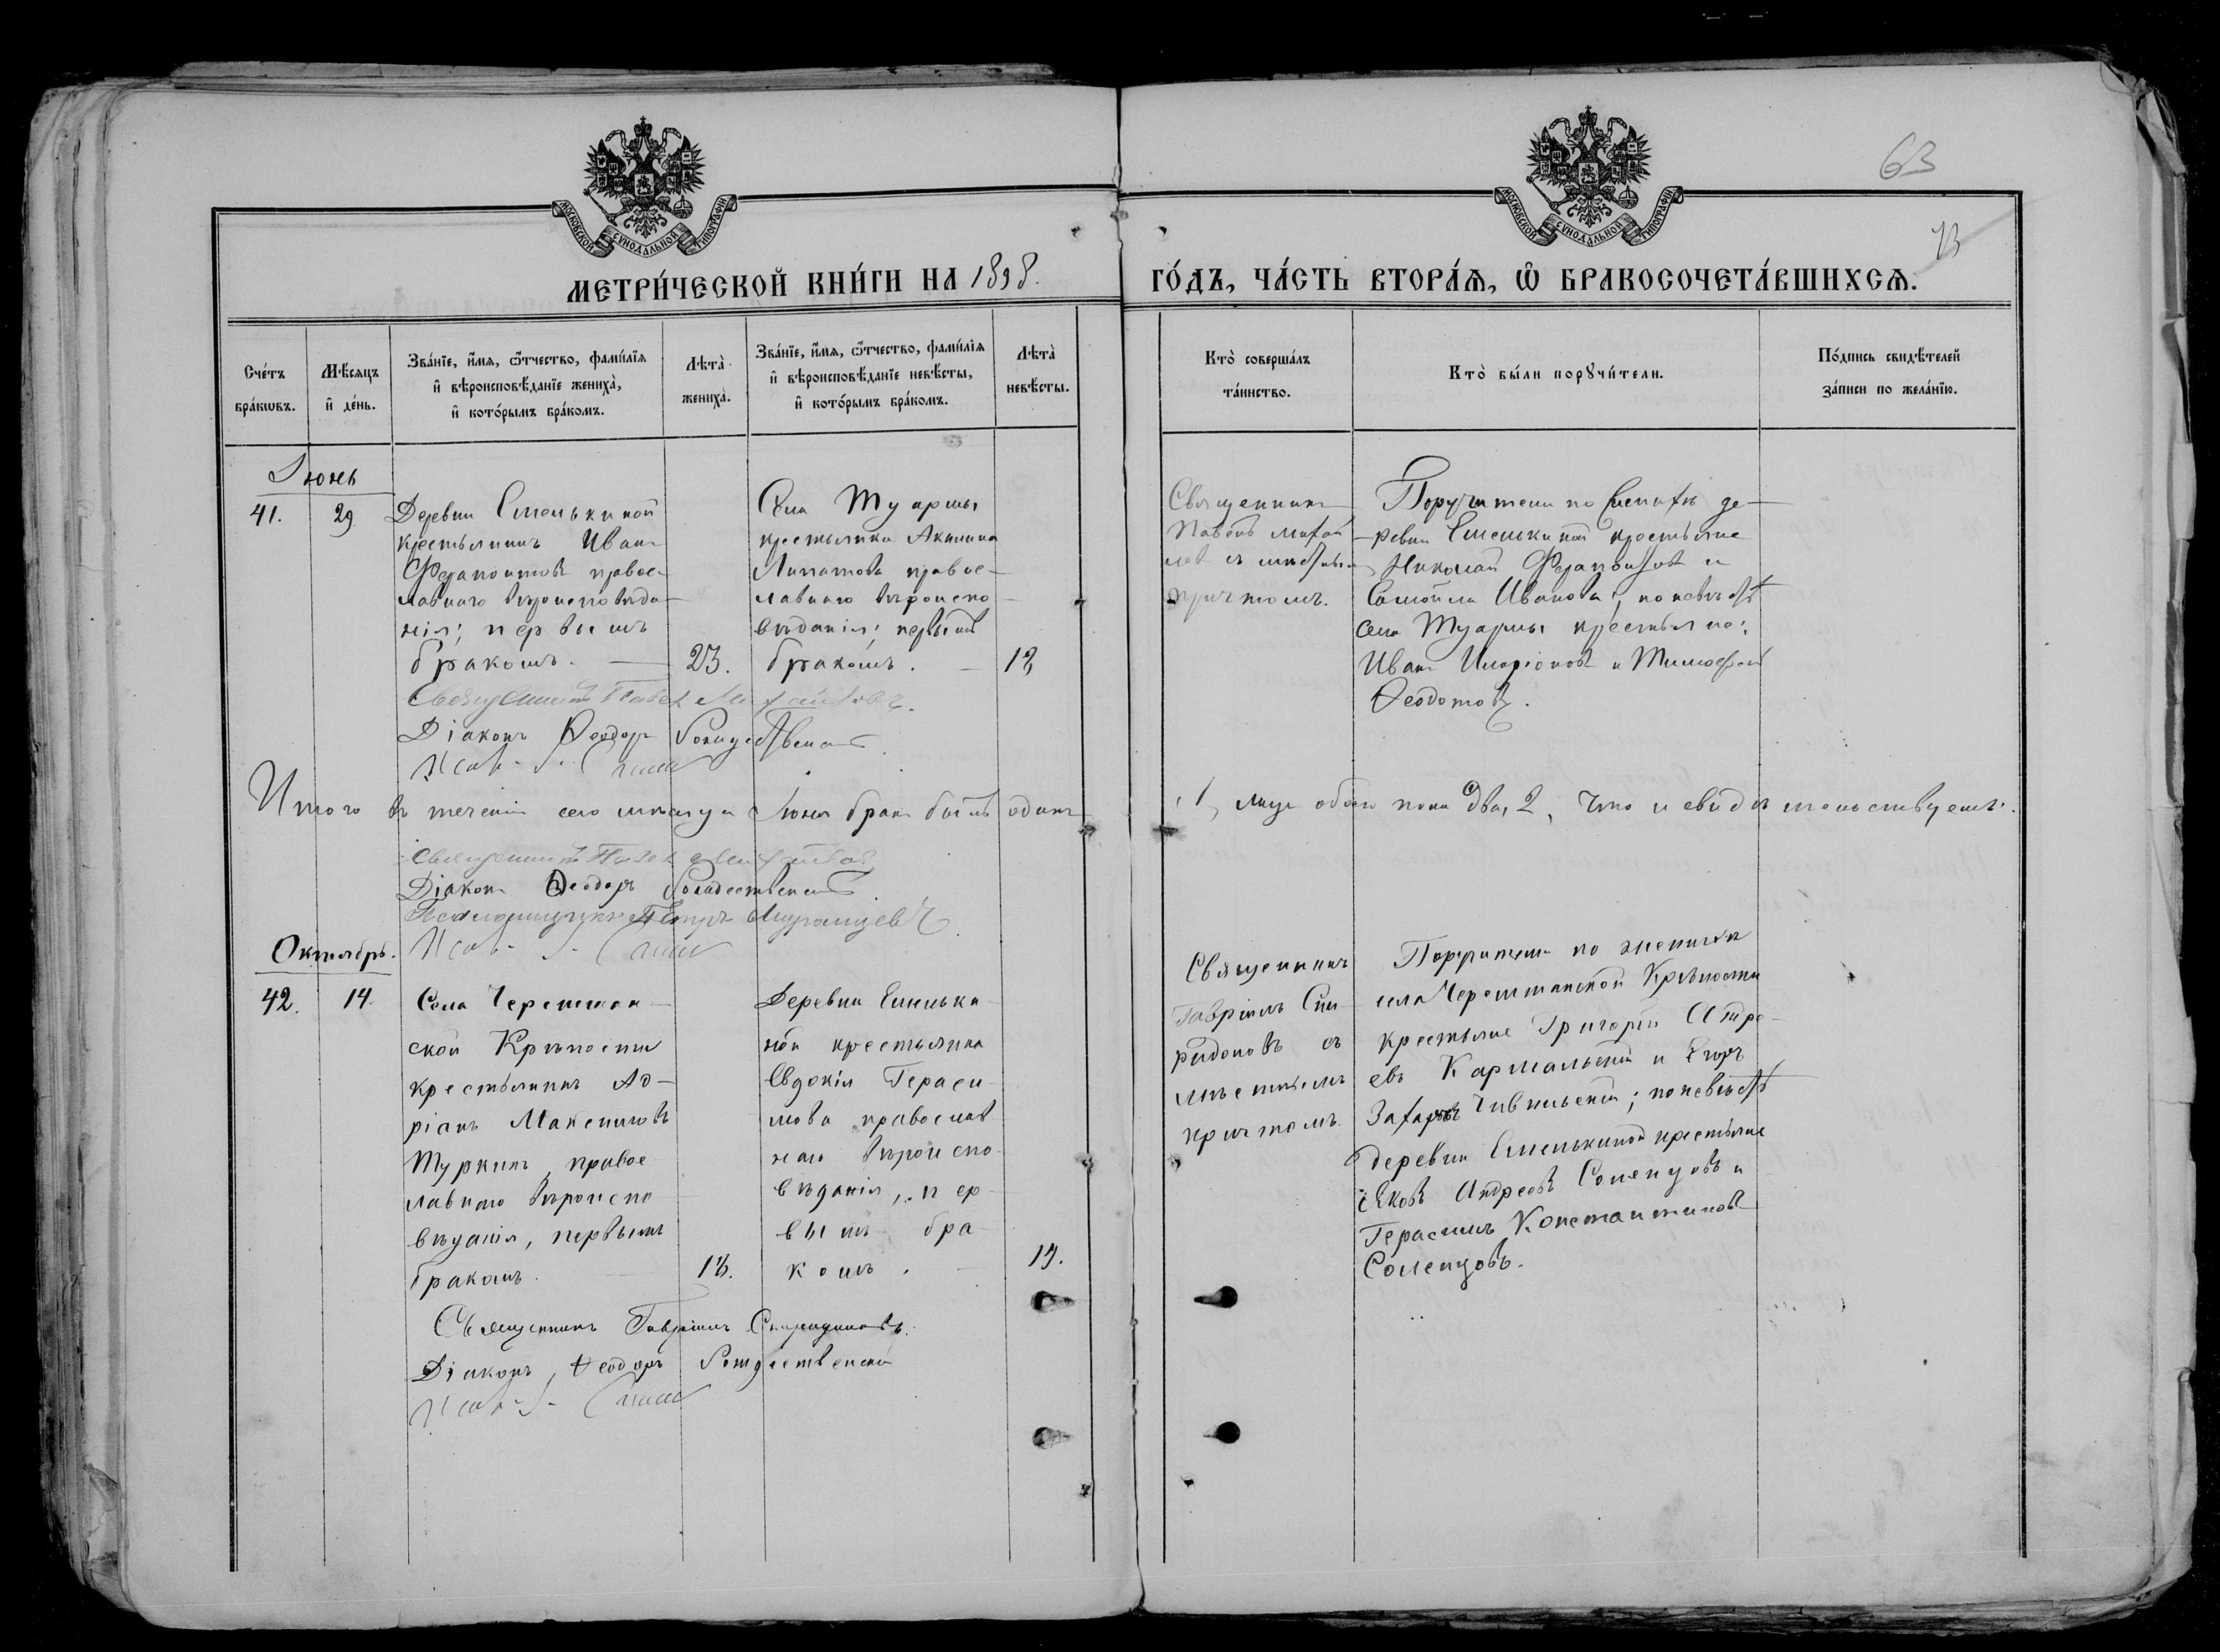 63
73
МОСКОВСКОЙ СѴНОДАЛЬНОЙ ТИПОГРАФІИ
МОСКОВСКОЙ СѴНОДАЛЬНОЙ ТИПОГРАФІИ
МЕТРИ́ЧЕСКОЙ КНИ́ГИ НА 1898.
ГО́ДЪ, ЧА́СТЬ ВТОРА́Ѧ, Ѡ҆ БРАКОСОЧЕТА́ВШИХСѦ.
Сче́тъ бра́кѡвъ.
Мѣ́сѧцъ и҆ де́нь.
Зва́нїе, и҆́мѧ, ѻ҆́тчество, фами́лїѧ
и҆ вѣроисповѣ́данїе жениха̀,
и҆ кото́рымъ бра́комъ.
Лѣта̀ жениха̀.
Зва́нїе, и҆́мѧ, ѻ҆́тчество, фами́лїѧ
и҆ вѣроисповѣ́данїе невѣ́сты,
и҆ кото́рымъ бра́комъ.
Лѣта̀ невѣ́сты.
Кто̀ соверша́лъ
та́инство.
Кто̀ бы́ли порꙋчи́тели.
По́дпись свидѣ́телей
за́писи по жела́нїю.
Іюнь
41.
29
Деревни Емелькиной
крестьянинъ Иванъ
Ферапонтовъ правос-
лавнаго вѣроисповѣда-
нія; первымъ
бракомъ.
23.
Села Туармы
крестьянка Акилина
Липатова правос-
лавнаго вѣроиспо-
вѣданія; первымъ
бракомъ.
18
Священникъ
Павелъ Михай-
ловъ съ мѣстнымъ
причтомъ.
Поручители по женихѣ де-
ревни Емелькиной крестьяне
Николай Ферапонтовъ и
Самойла Ивановъ; по невѣстѣ
села Туармы крестьяне:
Иванъ Иларіоновъ и Тимофей
Ѳеодотовъ.
Священникъ Павелъ Михайловъ.
Діаконъ Ѳеодоръ Рождественскій.
Итого въ теченіи сего мѣсяца Іюня бракъ былъ одинъ
1, лицъ обоего пола два, 2, Что и свидѣтельствуемъ.
Священникъ Павелъ Михайловъ
Діаконъ Ѳеодоръ Рождественскій.
Псаломщикъ Петръ
Октябрь.
42.
14.
Села Черемшан-
ской Крѣпости
крестьянинъ Ад-
ріанъ Максимовъ
Туркинъ, правос-
лавнаго вѣроиспо
вѣданія, первымъ
бракомъ.
18.
Деревни Емельки-
ной крестьянка
Евдокія Гераси-
мова православ
наго вѣроиспо-
вѣданія, пер-
вымъ бра-
комъ.
19.
Священникъ
Гавріилъ Спи-
ридоновъ съ
мѣстнымъ
причтомъ.
Поручители по женихѣ
села Черемшанской Крѣпости
крестьяне Григорій Андре-
евъ Кармальскій и Егоръ
Захаровъ; по невѣстѣ
деревни Емелькиной крестьяне
Яковъ Андреевъ Соленцовъ и
Герасимъ Константиновъ
Соленцовъ.
Священникъ Гавріилъ Спиридоновъ.
Діаконъ, Ѳеодоръ Рождественскій